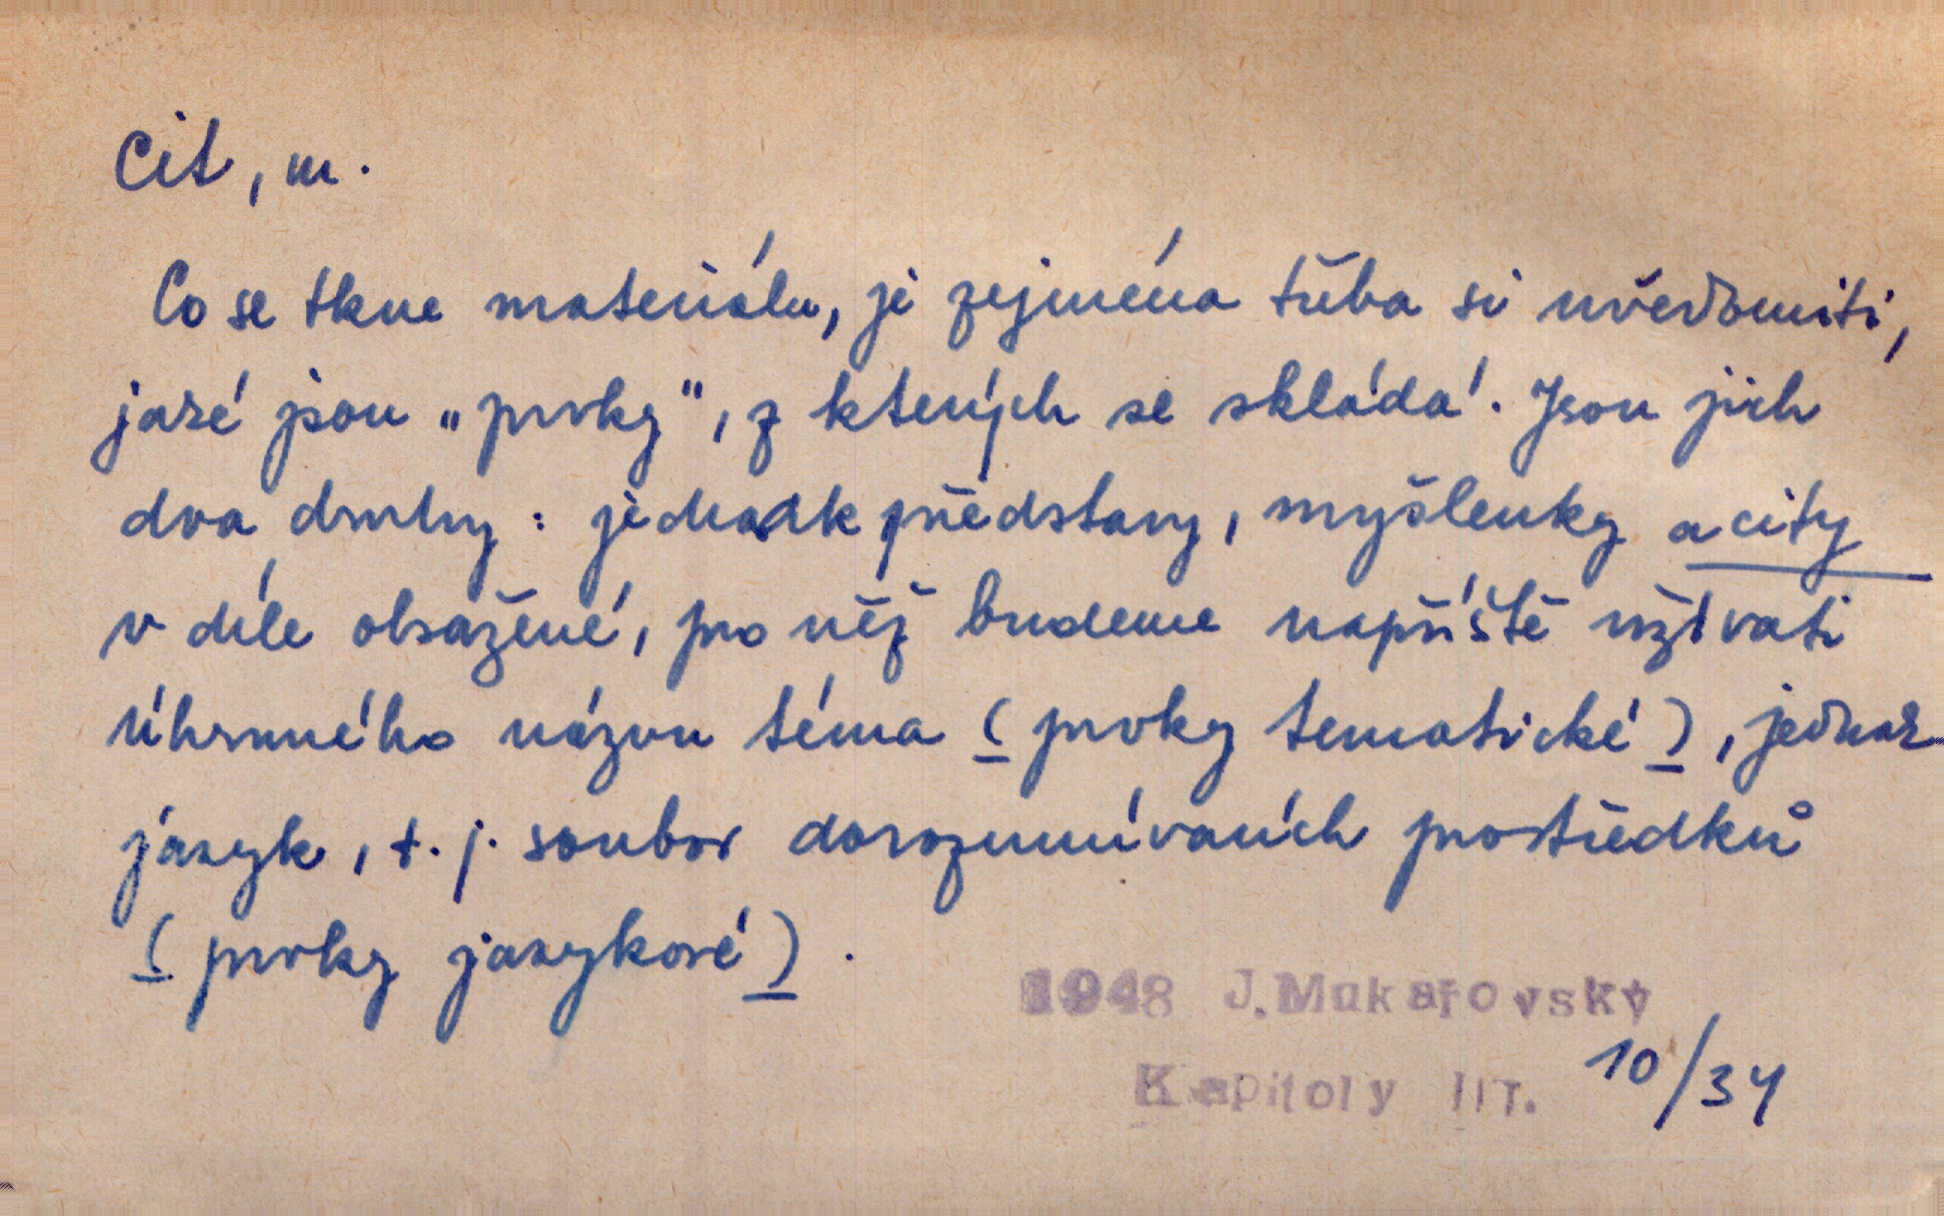 cit, m.
Co se tkne materiálu, je zejména třeba si uvědomiti,
jaké jsou „prvky", z kterých se skládá. Jsou jich
dva druhy: jednak představy, myšlenky a city
v díle obsažené, pro něž budeme napříště užívati
úhrnného názvu téma (prvky tematické), jednak
jazyk, t. j. soubor dorozumívacích prostředků
(prvky jazykové).
1948 J. Mukařovský
Kapitoly lit. 10/34